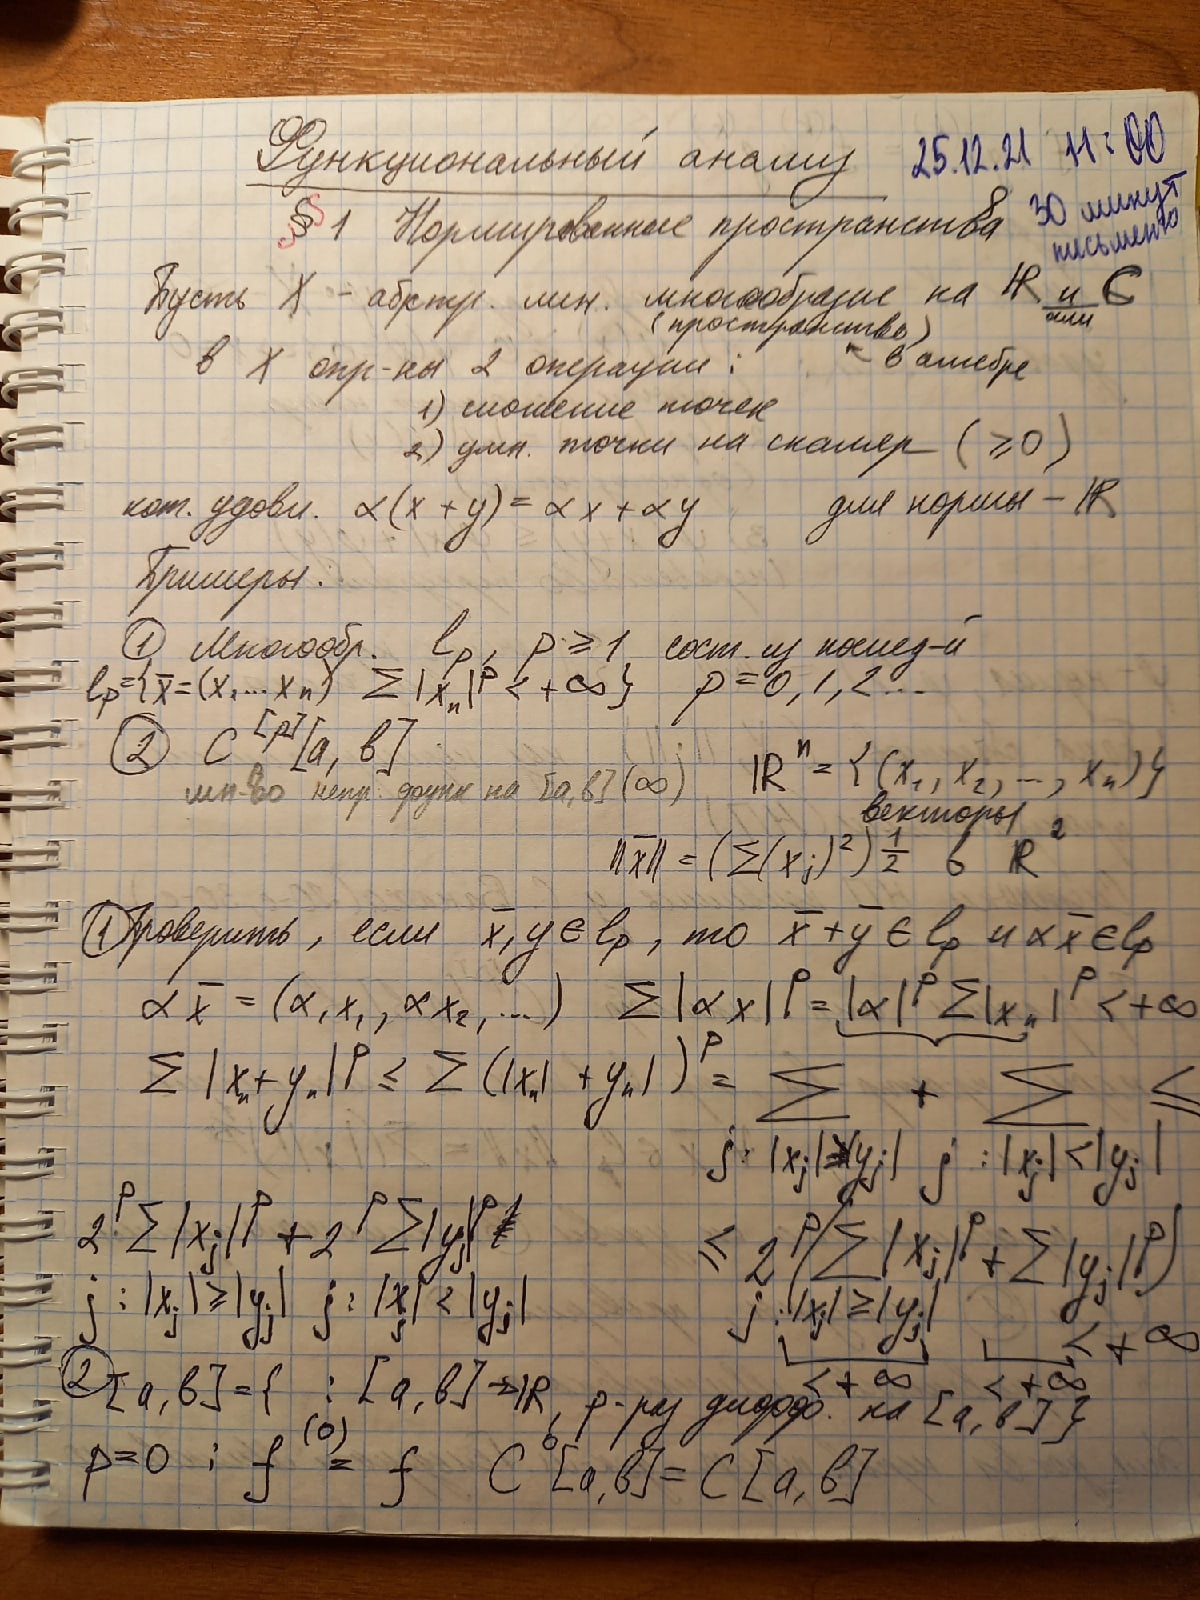 Функциональный анализ 25.12.21 11:00
§ 1 Нормированные пространства 30 минут письменно
Пусть X - абстр. лин. многообразие на ℝ и C
(пространство) или
в X опр-ны 2 операции: ← в алгебре
1) сложение точек
2) умн. точки на скаляр (≥0)
кот. удовл. α(x+y)=αx+αy для нормы - ℝ
Примеры:
① Многообр. lₚ, p≥1 сост. из послед-й
lₚ={x̄=(x₁...xₙ) Σ|xₙ|ᵖ<+∞} p=0,1,2...
② C^[p][a,b]
мн-во непр. функ на [a,b] (∞) ℝⁿ={(x₁, x₂, ..., xₙ)}
векторы
‖x̄‖=(Σ(xⱼ)²)^½ в ℝ²
① Проверить, если x̄, y∈lₚ, то x̄+ȳ∈lₚ и αx̄∈lₚ
αx̄=(α,x₁,αx₂,...) Σ|αx|ᵖ=|α|ᵖΣ|xₙ|ᵖ<+∞
Σ|xₙ+yₙ|ᵖ≤Σ(|xₙ|+yₙ|)ᵖ= Σ + Σ ≤
j:|xⱼ|≥|yⱼ| j:|xⱼ|<|yⱼ|
2ᵖΣ|xⱼ|ᵖ+2ᵖΣ|yⱼ|ᵖ ≤2ᵖ(Σ|xⱼ|ᵖ+Σ|yⱼ|ᵖ)
j:|xⱼ|≥|yⱼ| j:|xⱼ|<|yⱼ| j:|xⱼ|≥|yⱼ| <+∞
<+∞ <+∞
② [a,b]={ :[a,b]→ℝ, p-раз дифф. на [a,b]}
p=0: f⁽⁰⁾=f C⁰[a,b]=C[a,b]